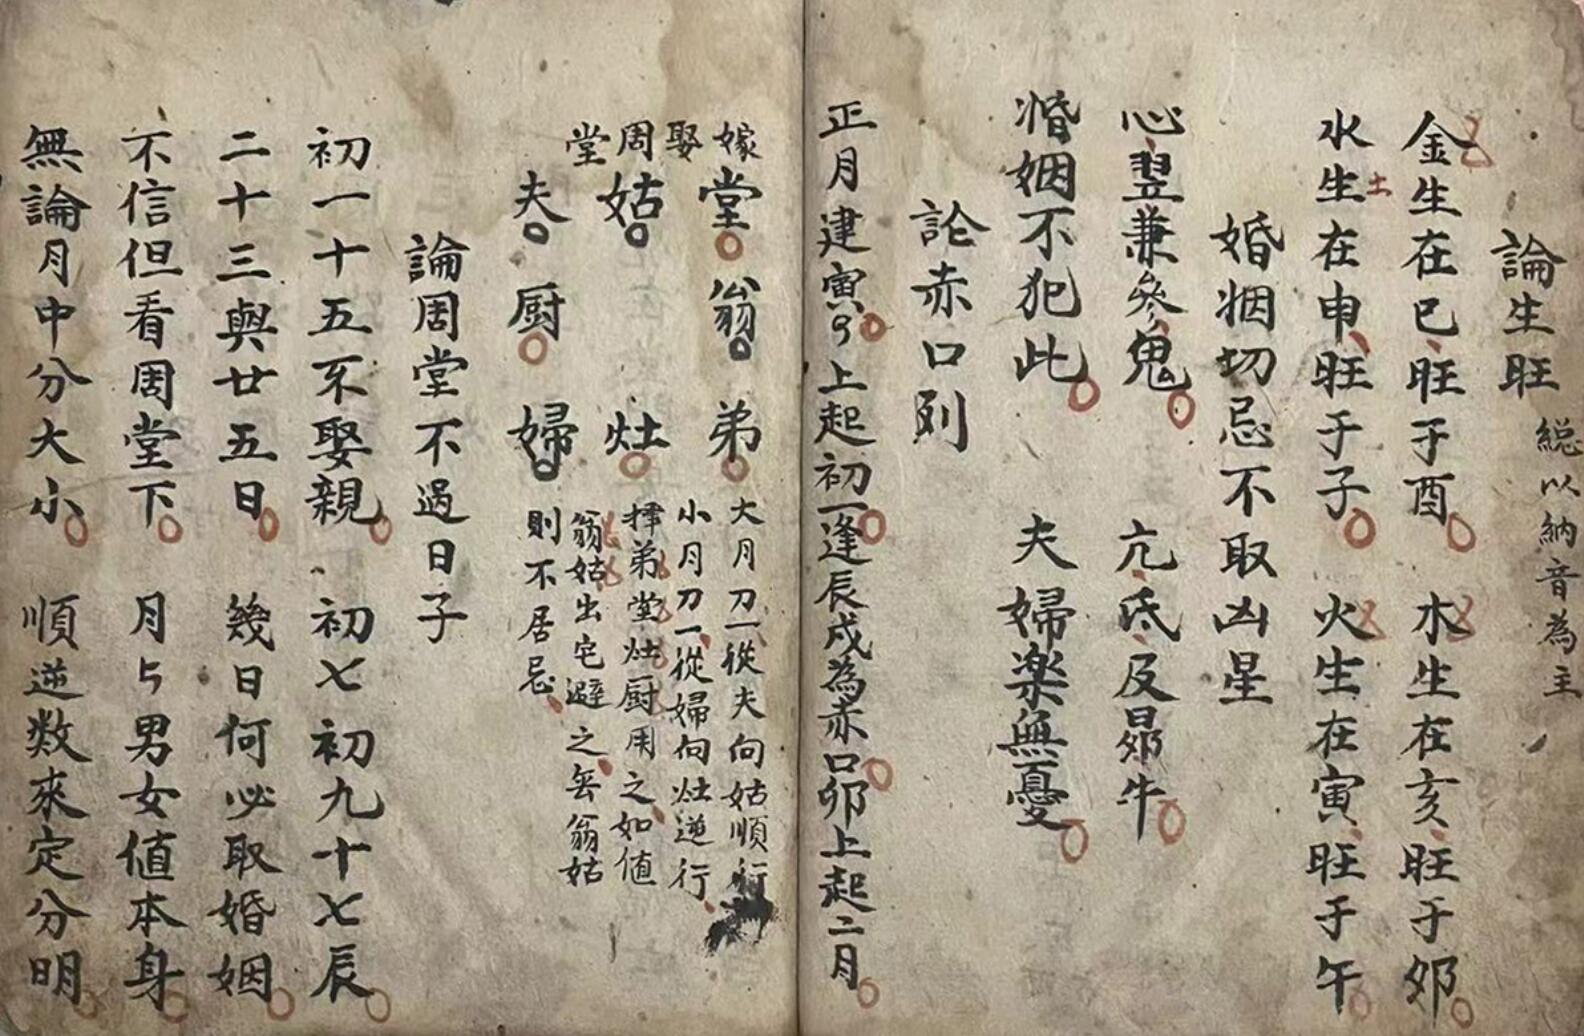 論生旺
總以納音為主
金生在巳旺于酉 木生在亥旺于卯
水土生在申旺于子 火生在寅旺于午
婚姻切忌不取凶星
心翌兼參鬼 亢氐及昴牛
婚姻不犯此 夫婦楽無憂
論赤口列
正月建寅寅上起初一逢辰戌為赤口卯上起二月
嫁娶周堂
堂 翁 弟
姑 灶
夫 厨 婦
大月刀一從夫向姑順行
小月刀一從婦向灶逆行
擇弟堂灶厨用之如值
翁姑出宅避之無翁姑
則不居忌
論周堂不過日子
初一十五不娶親 初七初九十七辰
二十三與廿五日 幾日何必取婚姻
不信但看周堂下 月与男女值本身
無論月中分大小 順逆数來定分明